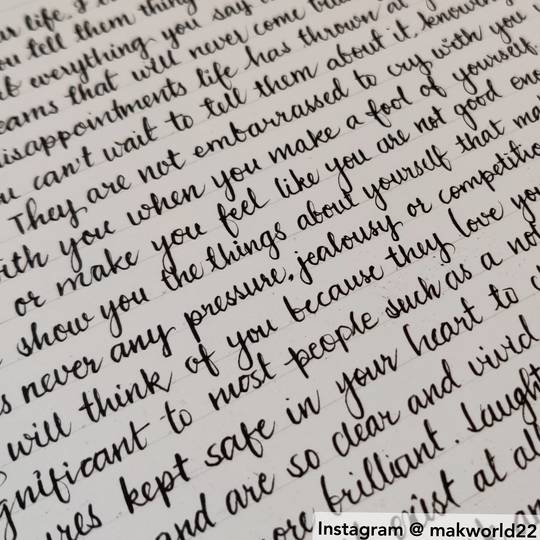 ur life, I
ou tell them thing
b everything you say
eams that will never come tru
disappointments life has thrown at
u can't wait to tell them about it, knowing
They are not embarrassed to cry with you
with you when you make a fool of yourself.
or make you feel like you are not good eno
show you the things about yourself that ma
s never any pressure, jealousy or competitio
will think of you because they love you
gnificant to most people such as a not
ures kept safe in your heart to ch
and are so clear and vivid
ore brilliant. Laught
exist at all
Instagram @ makworld22